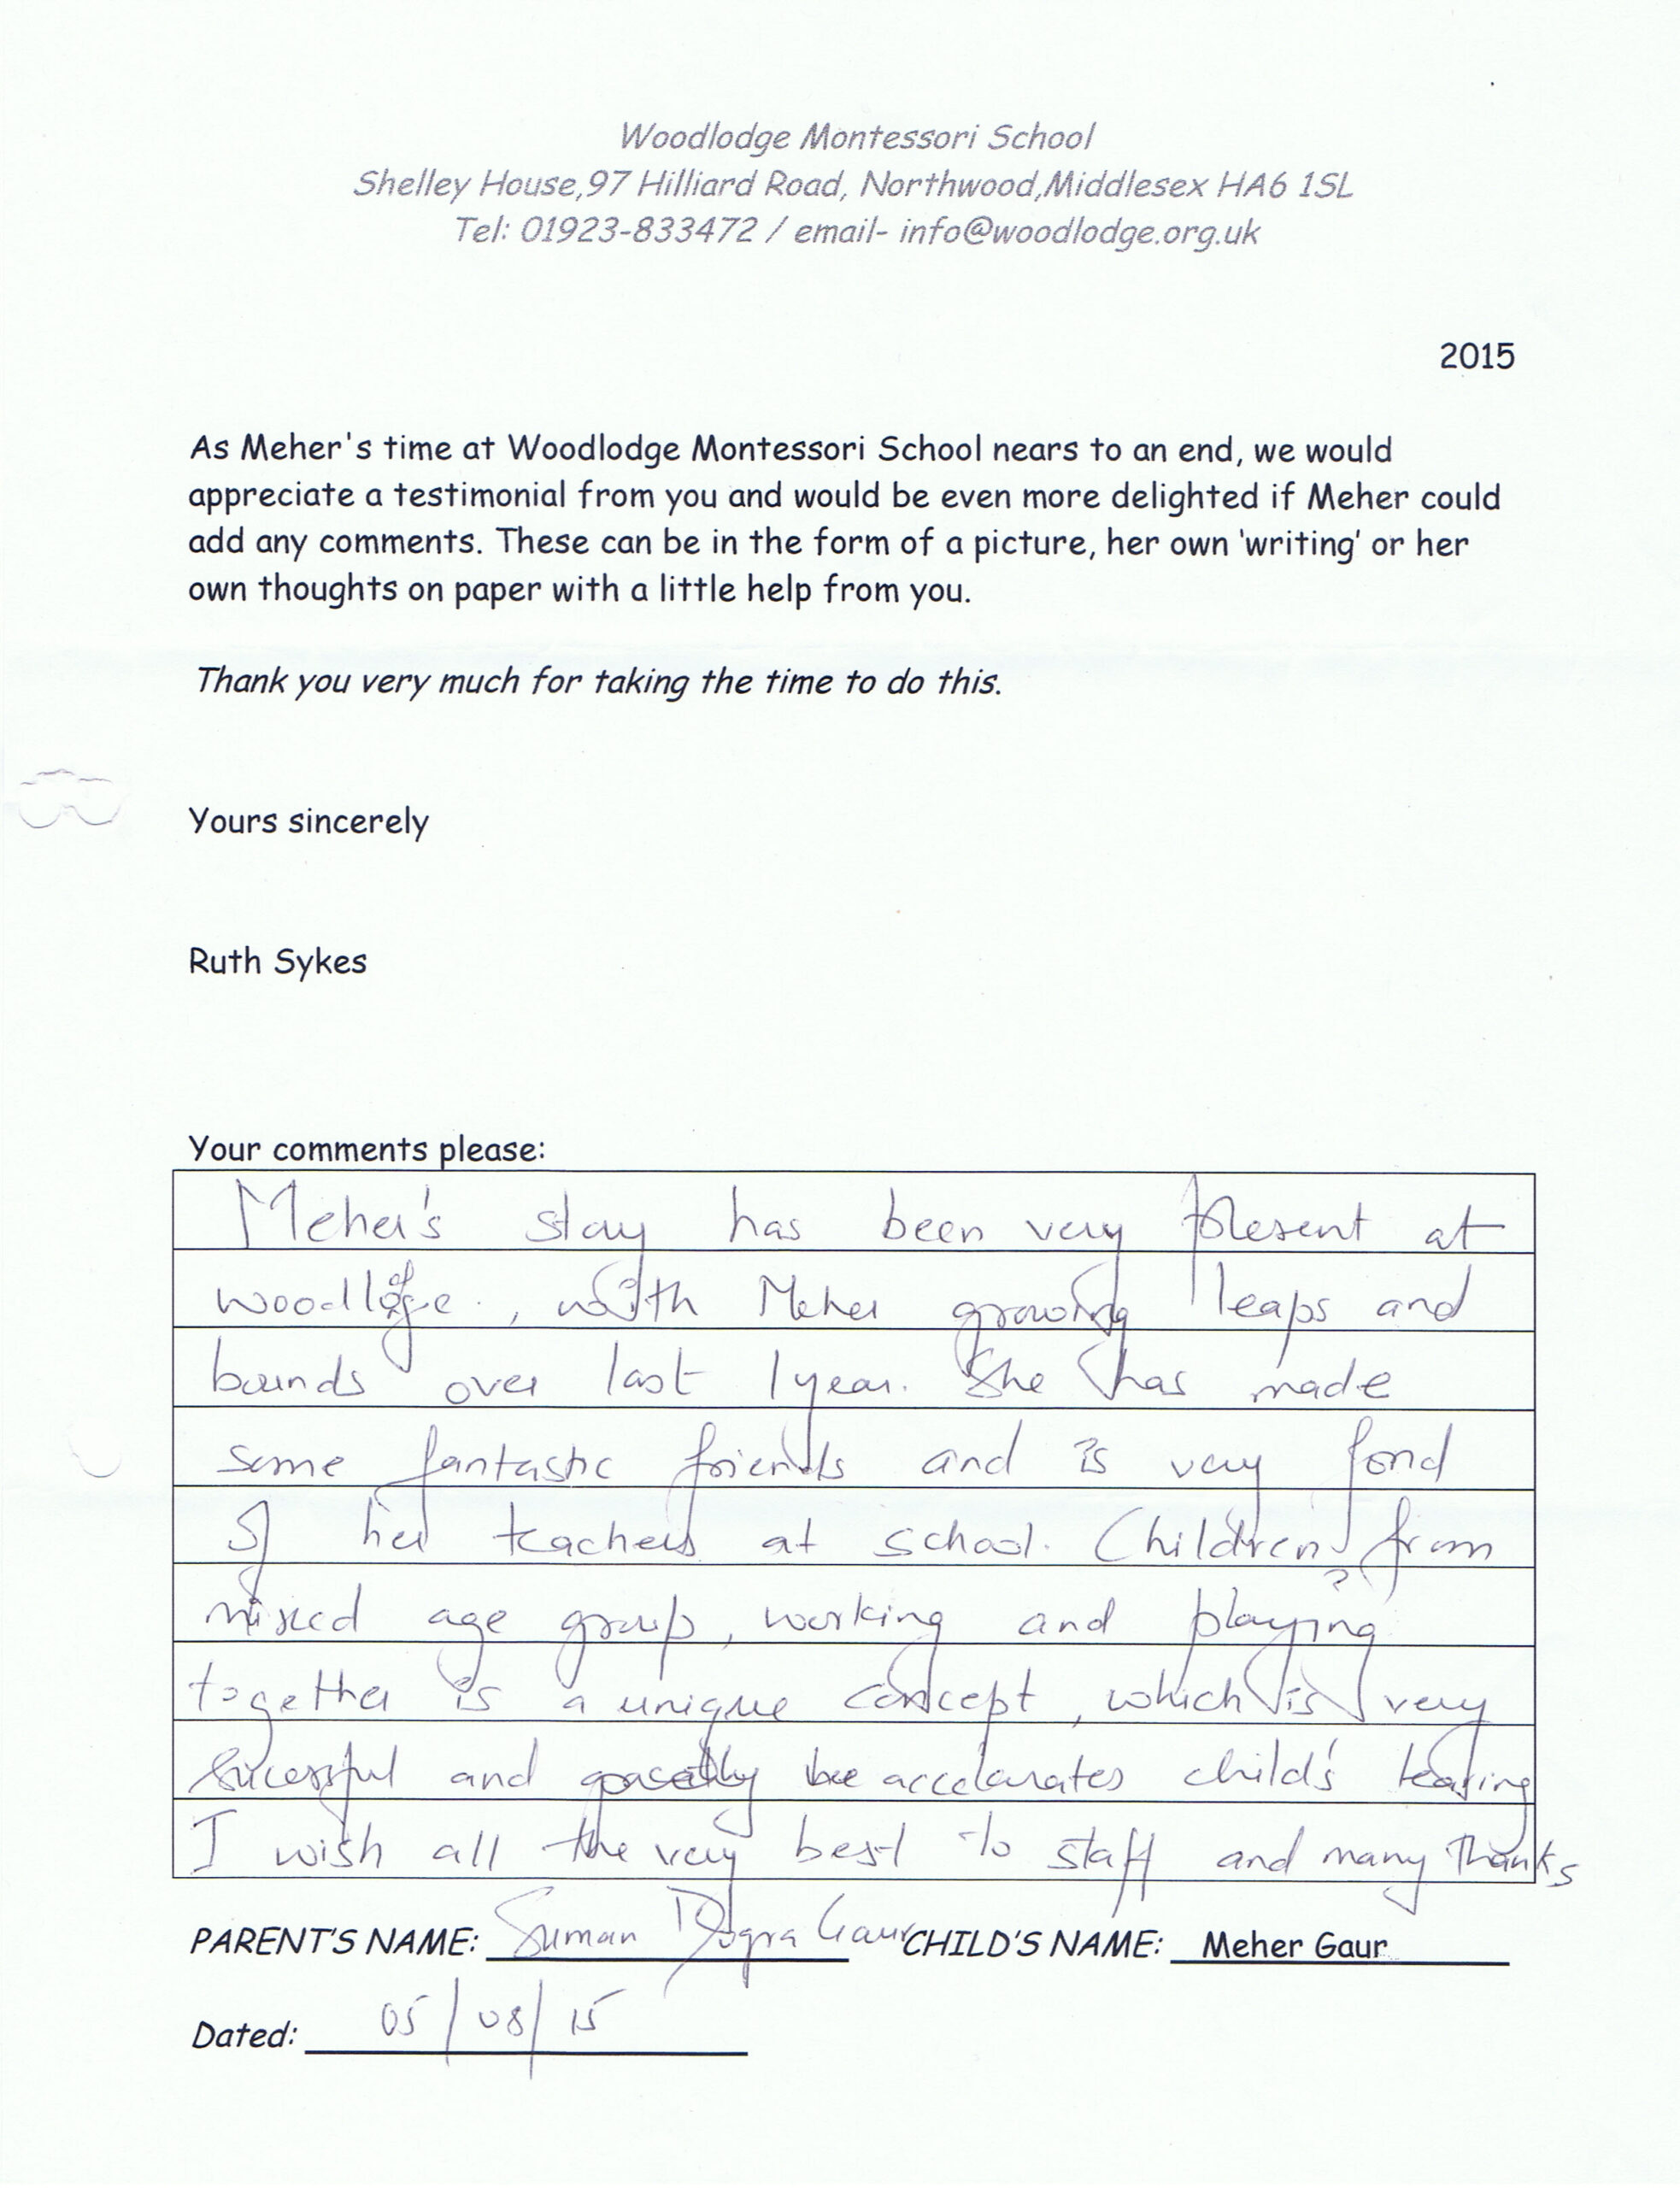 Woodlodge Montessori School
Shelley House,97 Hilliard Road, Northwood,Middlesex HA6 1SL
Tel: 01923-833472 / email- info@woodlodge.org.uk
2015
As Meher's time at Woodlodge Montessori School nears to an end, we would
appreciate a testimonial from you and would be even more delighted if Meher could
add any comments. These can be in the form of a picture, her own 'writing' or her
own thoughts on paper with a little help from you.
Thank you very much for taking the time to do this.
Yours sincerely
Ruth Sykes
Your comments please:
Meher's stay has been very plesent at
woodlodge, with Meher growing leaps and
bounds over last 1 year. She has made
some fantastic friends and is very fond
of her teachers at school. Children from
mixed age group, working and playing
together is a unique concept, which is very
sucessful and accelarates child's
I wish all the very best to staff and many thanks
PARENT'S NAME: Suman Dogra Gaur CHILD'S NAME: Meher Gaur
Dated: 05/08/15